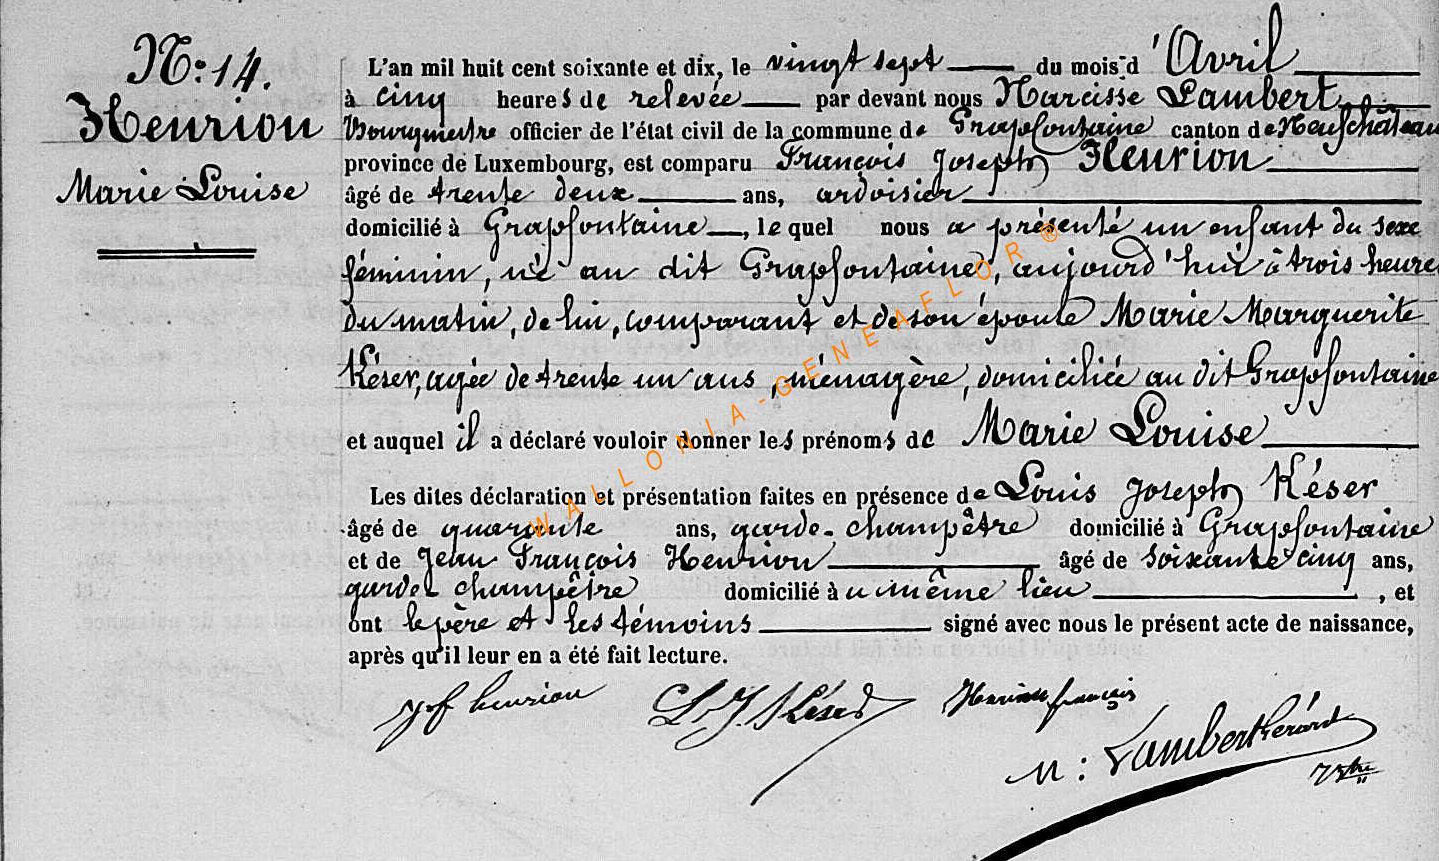 N.o 14.
Henrion
Marie Louise
L'an mil huit cent soixante et dix, le vingt sept du mois d'Avril
à cinq heures de relevée par devant nous Narcisse Lambert
Bourgmestre officier de l'état civil de la commune de Grapfontaine canton de Neufchâteau
province de Luxembourg, est comparu François Joseph Henrion
âgé de trente deux ans, ardoisier
domicilié à Grapfontaine, lequel nous a présenté un enfant du sexe
féminin, né au dit Grapfontaine, aujourd'hui à trois heures
du matin, de lui, comparant et de son épouse Marie Marguerite
Késer, agée de trente un ans, ménagère, domiciliée au dit Grapfontaine
et auquel il a déclaré vouloir donner les prénoms de Marie Louise
Les dites déclaration et présentation faites en présence de Louis Joseph Késer
âgé de quarante ans, garde-champêtre domicilié à Grapfontaine
et de Jean François Henrion âgé de soixante cinq ans,
garde-champêtre domicilié à u même lieu, et
ont le père et les témoins signé avec nous le présent acte de naissance,
après qu'il leur en a été fait lecture.
henrion
L. J. Késer
Henrion françois
N: Lambert
WALLONIA-GENEAFLOR®